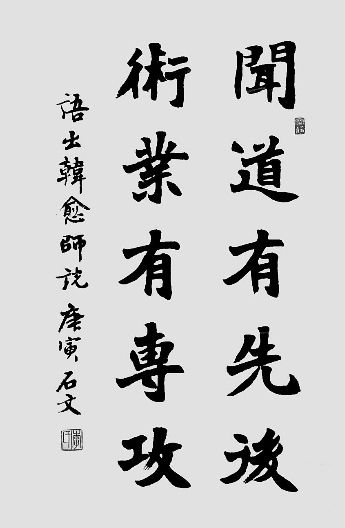 聞道有先後
術業有專攻
語出韓愈師說庚寅石文